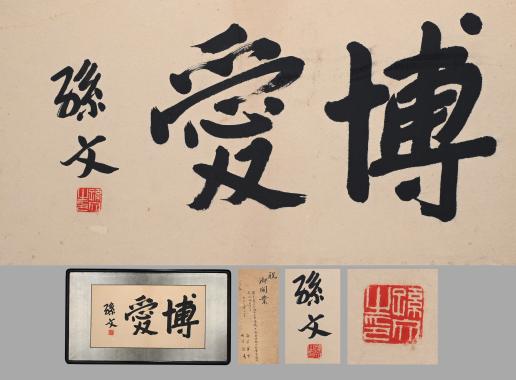 博愛
孫文
孫文之印
博愛
孫文
祝
御開業
孫文
孫文之印